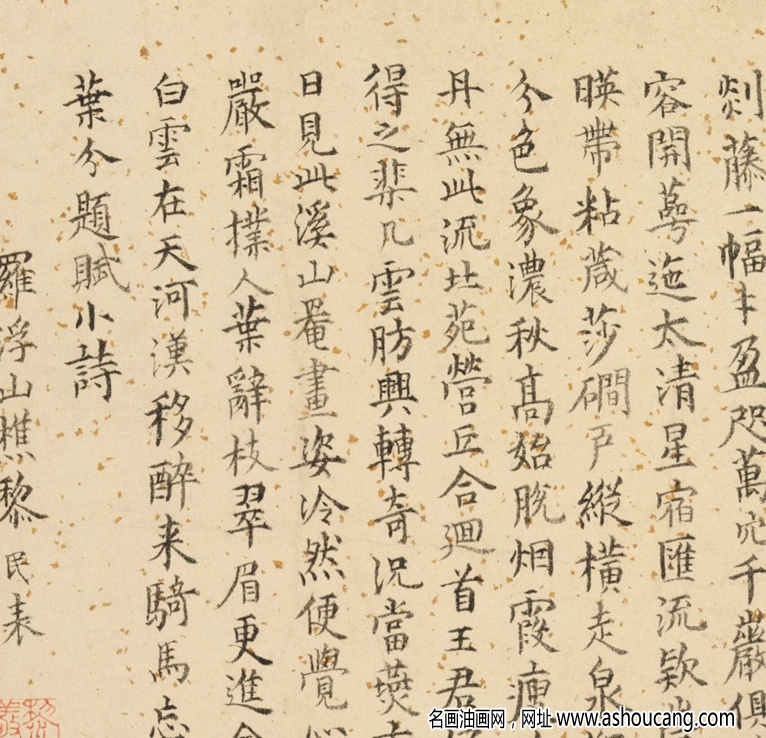 剡藤一幅才盈咫萬穴千巖俱
容開蕚迤太清星宿匯流欵
暎帶粘葴莎磵戸縱橫走泉
分色象濃秋髙始脫烟霞瘦
丹無此流北苑營丘合廻首王君
得之棐几雲肪興轉奇況當爕
日見此溪山罨畫姿冷然便覺
嚴霜撲人葉辭枝翠眉更進
白雲在天河漢移醉来騎馬忘
葉分題賦小詩
羅浮山樵黎民表
名画油画网，网址 www.ashoucang.com